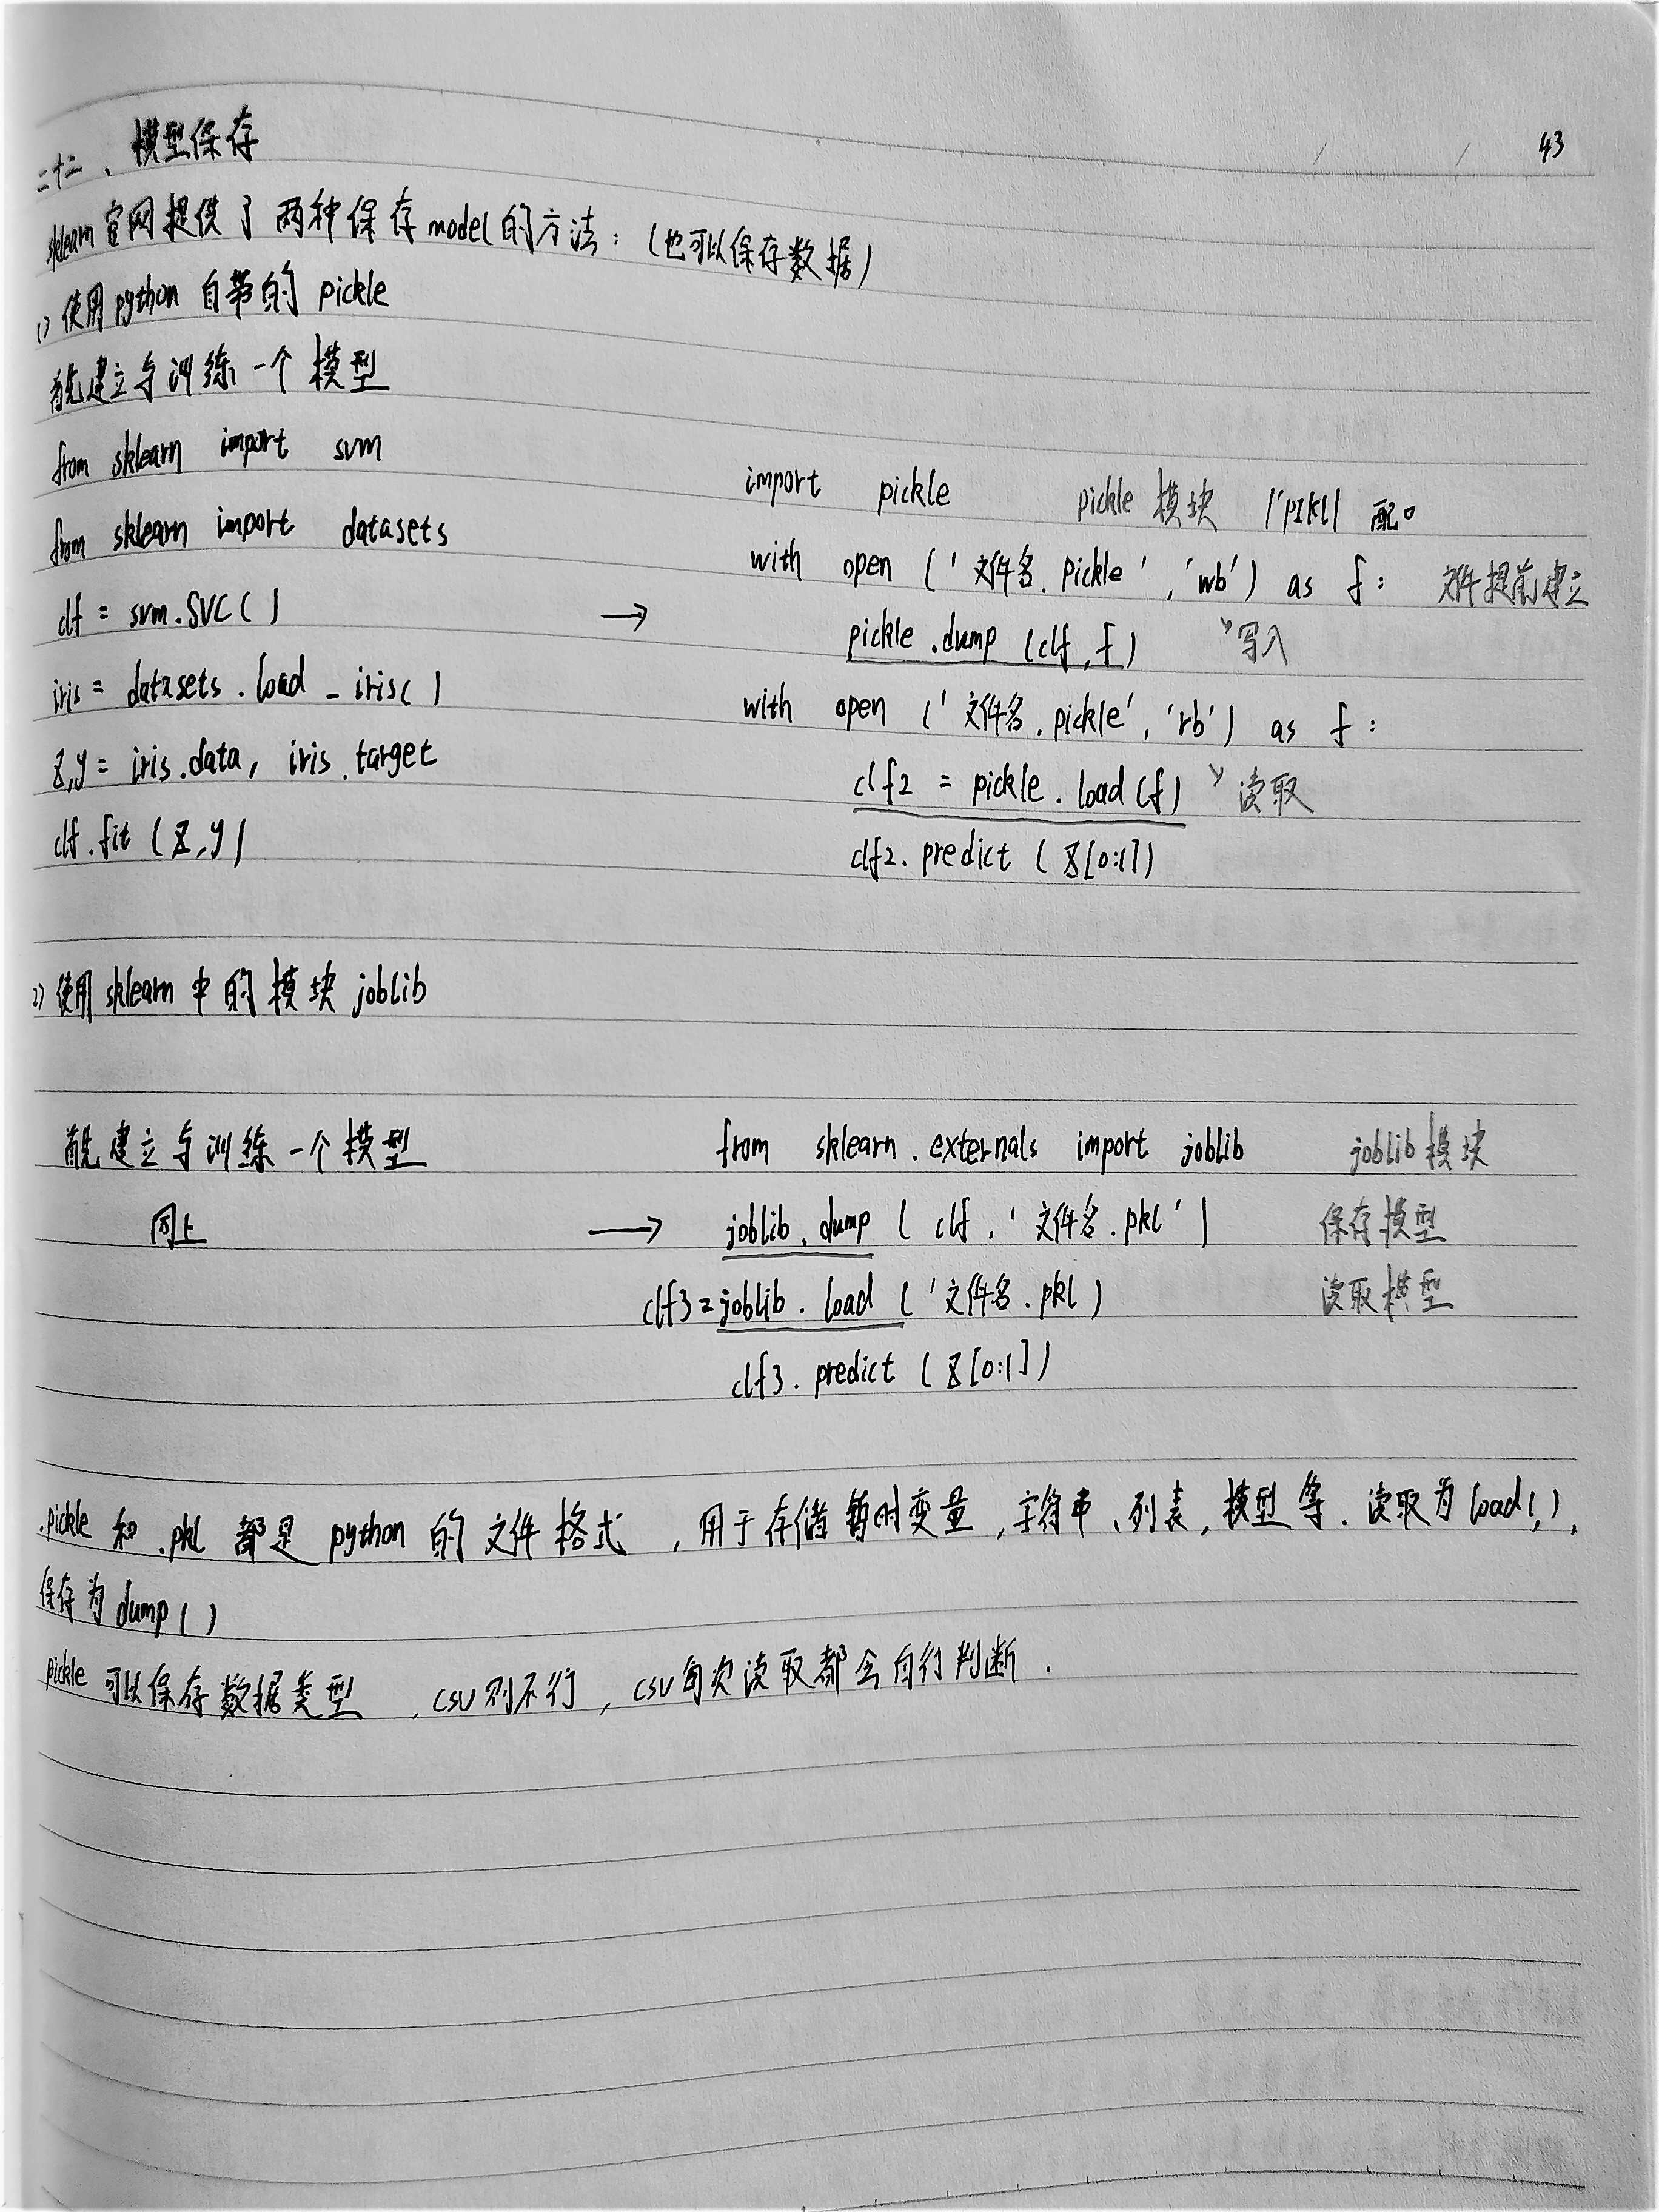 二十二、模型保存
43
sklearn官网提供了两种保存model的方法：(也可以保存数据)
1) 使用python自带的pickle
首先建立与训练一个模型
from sklearn import svm
from sklearn import datasets
clf = svm.SVC()
iris = datasets.load_iris()
X,y = iris.data, iris.target
clf.fit(X,y)
→
import pickle pickle模块
with open('文件名.pickle','wb') as f: 文件提前建立
pickle.dump(clf,f) 写入
with open('文件名.pickle','rb') as f:
clf2 = pickle.load(f) 读取
clf2.predict(X[0:1])
2) 使用sklearn中的模块joblib
首先建立与训练一个模型
同上
→
from sklearn.externals import joblib joblib模块
joblib.dump(clf,'文件名.pkl') 保存模型
clf3=joblib.load('文件名.pkl) 读取模型
clf3.predict(X[0:1])
.pickle和.pkl都是python的文件格式，用于存储暂时变量，字符串、列表，模型等．读取为load()，
保存为dump()
pickle可以保存数据类型，csv则不行，csv每次读取都会自行判断．